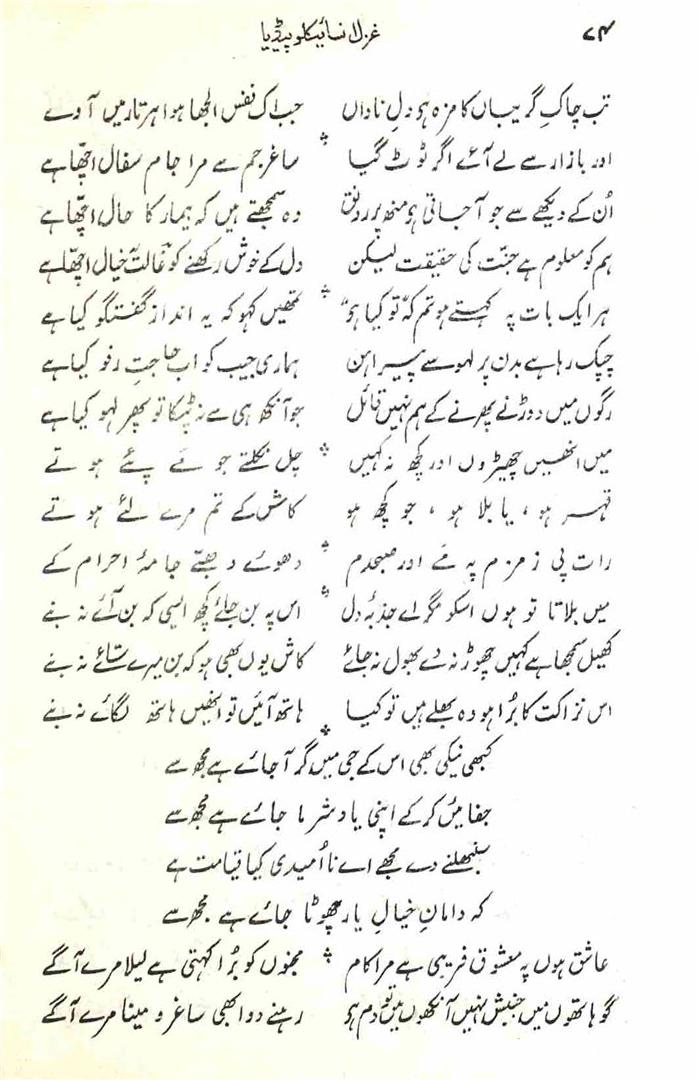 ۷۴ غزل انسائیکلو پیڈیا
تب چاکِ گریباں کا مزہ ہو دلِ ناداں جب اک نفس الجھا ہوا ہر تار میں آوے
اور بازار سے لے آئے اگر ٹوٹ گیا ساغرِ جم سے مرا جامِ سفال اچھا ہے
اُن کے دیکھے سے جو آجاتی ہو منھ پر رونق وہ سمجھتے ہیں کہ بیمار کا حال اچھا ہے
ہم کو معلوم ہے جنّت کی حقیقت لیکن دل کے خوش رکھنے کو غالبؔ یہ خیال اچھا ہے
ہر ایک بات پہ کہتے ہو تم کہ تو کیا ہو تمھیں کہو کہ یہ اندازِ گفتگو کیا ہے
چپک رہا ہے بدن پر لہو سے پیراہن ہماری جیب کو اب حاجتِ رفو کیا ہے
رگوں میں دوڑنے پھرنے کے ہم نہیں قائل جو آنکھ ہی سے نہ ٹپکا تو پھر لہو کیا ہے
میں انھیں چھیڑوں اور کچھ نہ کہیں چل نکلتے جو مے پئے ہوتے
قہر ہو، یا بلا ہو، جو کچھ ہو کاش کے تم مرے لئے ہوتے
رات پی زمزم پہ مے اور صبحدم دھوئے دھبّے جامۂ احرام کے
میں بلاتا تو ہوں اسکو مگر اے جذبۂ دل اس پہ بن جائے کچھ ایسی کہ بن آئے نہ بنے
کھیل سمجھا ہے کہیں چھوڑ نہ دے بھول نہ جائے کاش یوں بھی ہو کہ بن میرے ستائے نہ بنے
اس نزاکت کا بُرا ہو وہ بھلے ہیں تو کیا ہاتھ آئیں تو انھیں ہاتھ لگائے نہ بنے
کبھی نیکی بھی اس کے جی میں گر آجائے ہے مجھ سے
جفائیں کر کے اپنی یاد شرما جائے ہے مجھ سے
سنبھلنے دے مجھے اے نا اُمیدی کیا قیامت ہے
کہ دامانِ خیالِ یار چھوٹا جائے ہے مجھ سے
عاشق ہوں پہ معشوق فریبی ہے مرا کام مجنوں کو بُرا کہتی ہے لیلا مرے آگے
گو ہاتھوں میں جنبش نہیں آنکھوں میں تو دم ہو رہنے دو ابھی ساغر و مینا مرے آگے